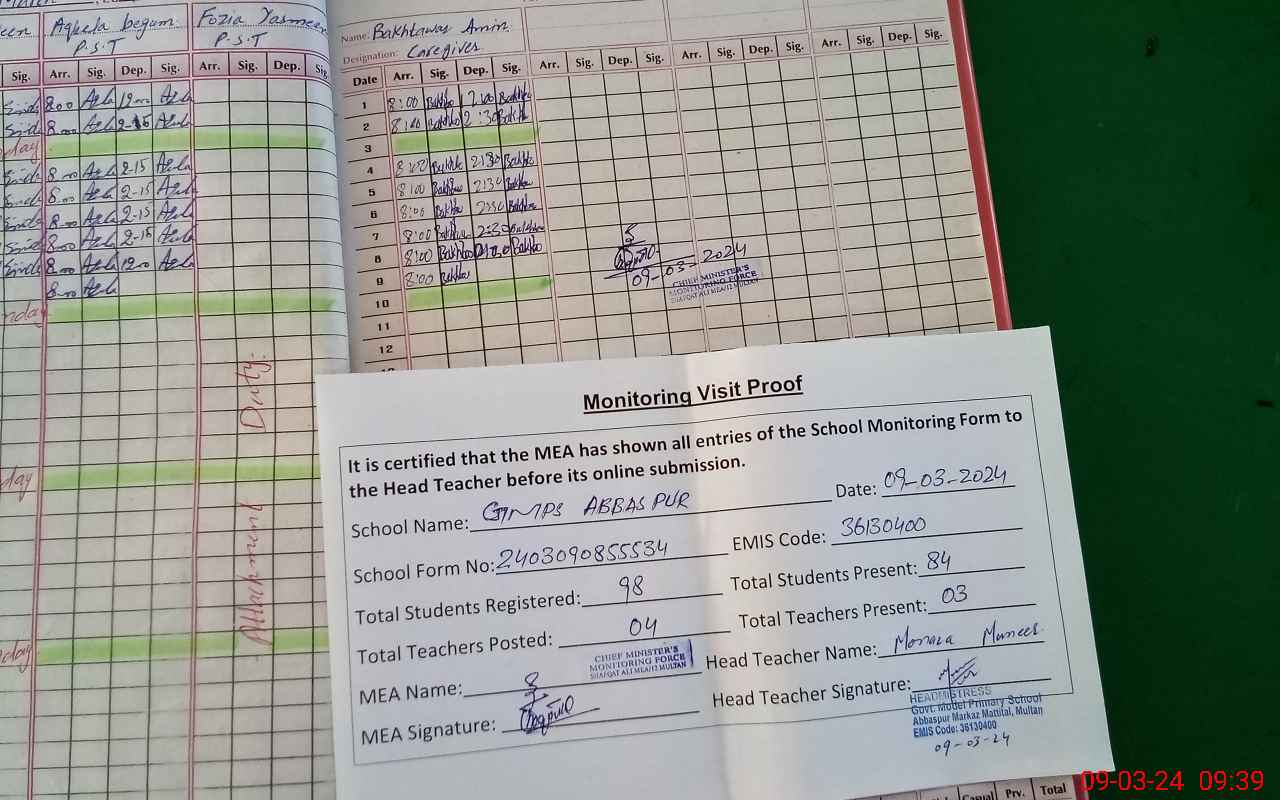 Aqeela begum
P.S.T
Fozia Yasmeen
P.S.T
Sig. Arr. Sig. Dep. Sig. Arr. Sig. Dep. Sig.
8:00 Aqla 12:00 Aqla
8:00 Aqla 2-15 Aqla
8:00 Aqla 2-15 Aqla
8:00 Aqla 2-15 Aqla
8:00 Aqla 2-15 Aqla
8:00 Aqla 2-15 Aqla
8:00 Aqla 12:00 Aqla
8:00 Aqla
Attachment Duty.
Name: Bakhtawar Amin
Designation: Caregiver
Date Arr. Sig. Dep. Sig. Arr. Sig. Dep. Sig. Arr. Sig. Dep. Sig. Arr. Sig. Dep. Sig.
1 8:00 Bakhtw 12:00 Bakhtw
2 8:00 Bakhtw 2:30 Bakhtw
3
4 8:00 Bakhtw 2:30 Bakhtw
5 8:00 Bakhtw 2:30 Bakhtw
6 8:00 Bakhtw 2:30 Bakhtw
7 8:00 Bakhtw 2:30 Bakhtw
8 8:00 Bakhtw Bakhtw
9 8:00 Bakhtw
10
11
12
09-03-2024
CHIEF MINISTER'S
MONITORING FORCE
SHAFQAT ALI MEA/12 MULTAN
Monitoring Visit Proof
It is certified that the MEA has shown all entries of the School Monitoring Form to
the Head Teacher before its online submission.
School Name: GMPS ABBASPUR Date: 09-03-2024
School Form No: 2403090855534 EMIS Code: 36130400
Total Students Registered: 98 Total Students Present: 84
Total Teachers Posted: 04 Total Teachers Present: 03
MEA Name: CHIEF MINISTER'S
MONITORING FORCE
SHAFQAT ALI MEA/12 MULTAN
Head Teacher Name: Monaza Muneer
MEA Signature: Head Teacher Signature:
HEADMISTRESS
Govt. Model Primary School
Abbaspur Markaz Mattital, Multan
EMIS Code: 36130400
09-03-24
Casual Prv. Total
09-03-24 09:39